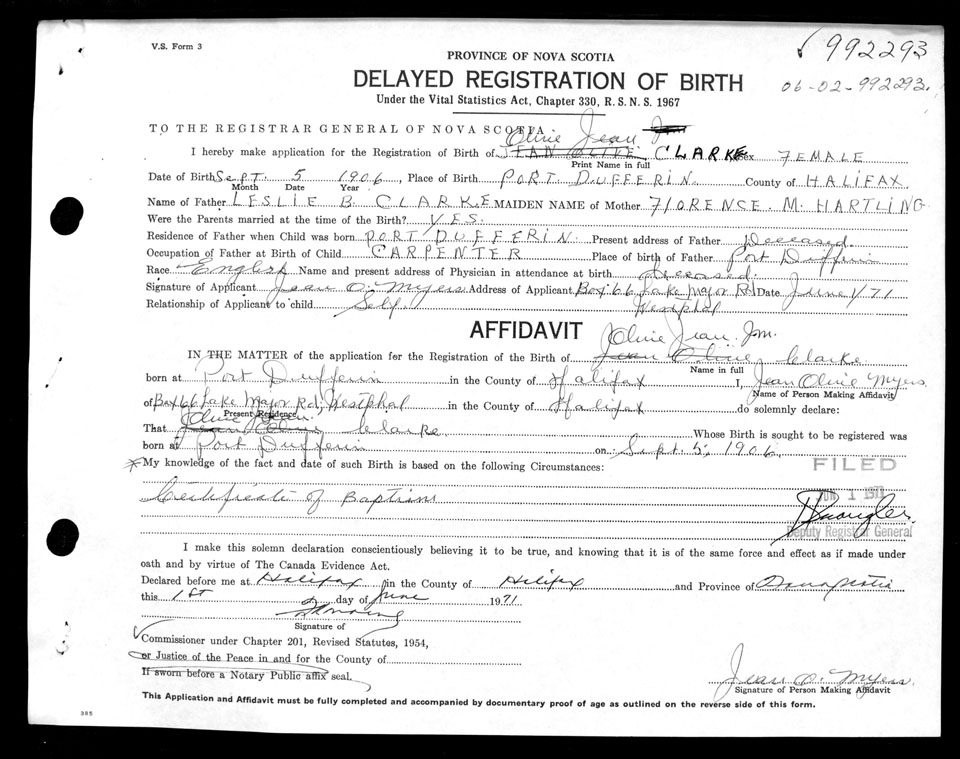 V.S. Form 3
992293
PROVINCE OF NOVA SCOTIA
DELAYED REGISTRATION OF BIRTH
06-02-992293.
Under the Vital Statistics Act, Chapter 330, R.S.N.S. 1967
TO THE REGISTRAR GENERAL OF NOVA SCOTIA
Olive Jean
I hereby make application for the Registration of Birth of JEAN OLIVE CLARKE Sex FEMALE
Print Name in full
Date of Birth SEPT. 5 1906, Place of Birth PORT DUFFERIN County of HALIFAX
Month Date Year
Name of Father LESLIE B. CLARKE MAIDEN NAME of Mother FLORENCE M. HARTLING
Were the Parents married at the time of the Birth? YES.
Residence of Father when Child was born PORT DUFFERIN. Present address of Father Deceased.
Occupation of Father at Birth of Child CARPENTER Place of birth of Father Port Dufferin
Race English Name and present address of Physician in attendance at birth deceased.
Signature of Applicant Jean O. Myers Address of Applicant Box 66 Lake Major Rd Date June 1/71
Relationship of Applicant to child Self Westphal
AFFIDAVIT
Olive Jean
IN THE MATTER of the application for the Registration of the Birth of Jean Olive Clarke
Name in full
born at Port Dufferin in the County of Halifax I, Jean Olive Myers
Name of Person Making Affidavit
of Box 66 Lake Major Rd, Westphal in the County of Halifax do solemnly declare:
Present Residence
Olive Jean
That Jean Olive Clarke Whose Birth is sought to be registered was
born at Port Dufferin on Sept. 5, 1906
FILED
*My knowledge of the fact and date of such Birth is based on the following Circumstances:
Certificate of Baptism
JUN 1 1971
Deputy Registrar General
I make this solemn declaration conscientiously believing it to be true, and knowing that it is of the same force and effect as if made under
oath and by virtue of The Canada Evidence Act.
Declared before me at Halifax in the County of Halifax and Province of Nova Scotia
this 1st day of June 1971
Signature of
Commissioner under Chapter 201, Revised Statutes, 1954,
or Justice of the Peace in and for the County of
If sworn before a Notary Public affix seal.
Jean O. Myers
Signature of Person Making Affidavit
This Application and Affidavit must be fully completed and accompanied by documentary proof of age as outlined on the reverse side of this form.
385